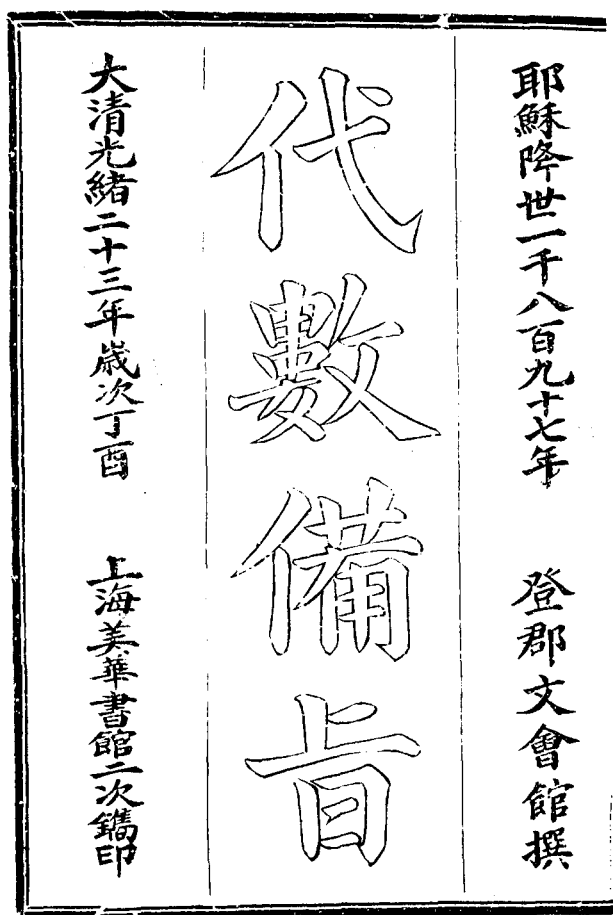 耶穌降世一千八百九十七年
登郡文會館撰
代數備旨
大清光緒二十三年歲次丁酉
上海美華書館二次鐫印